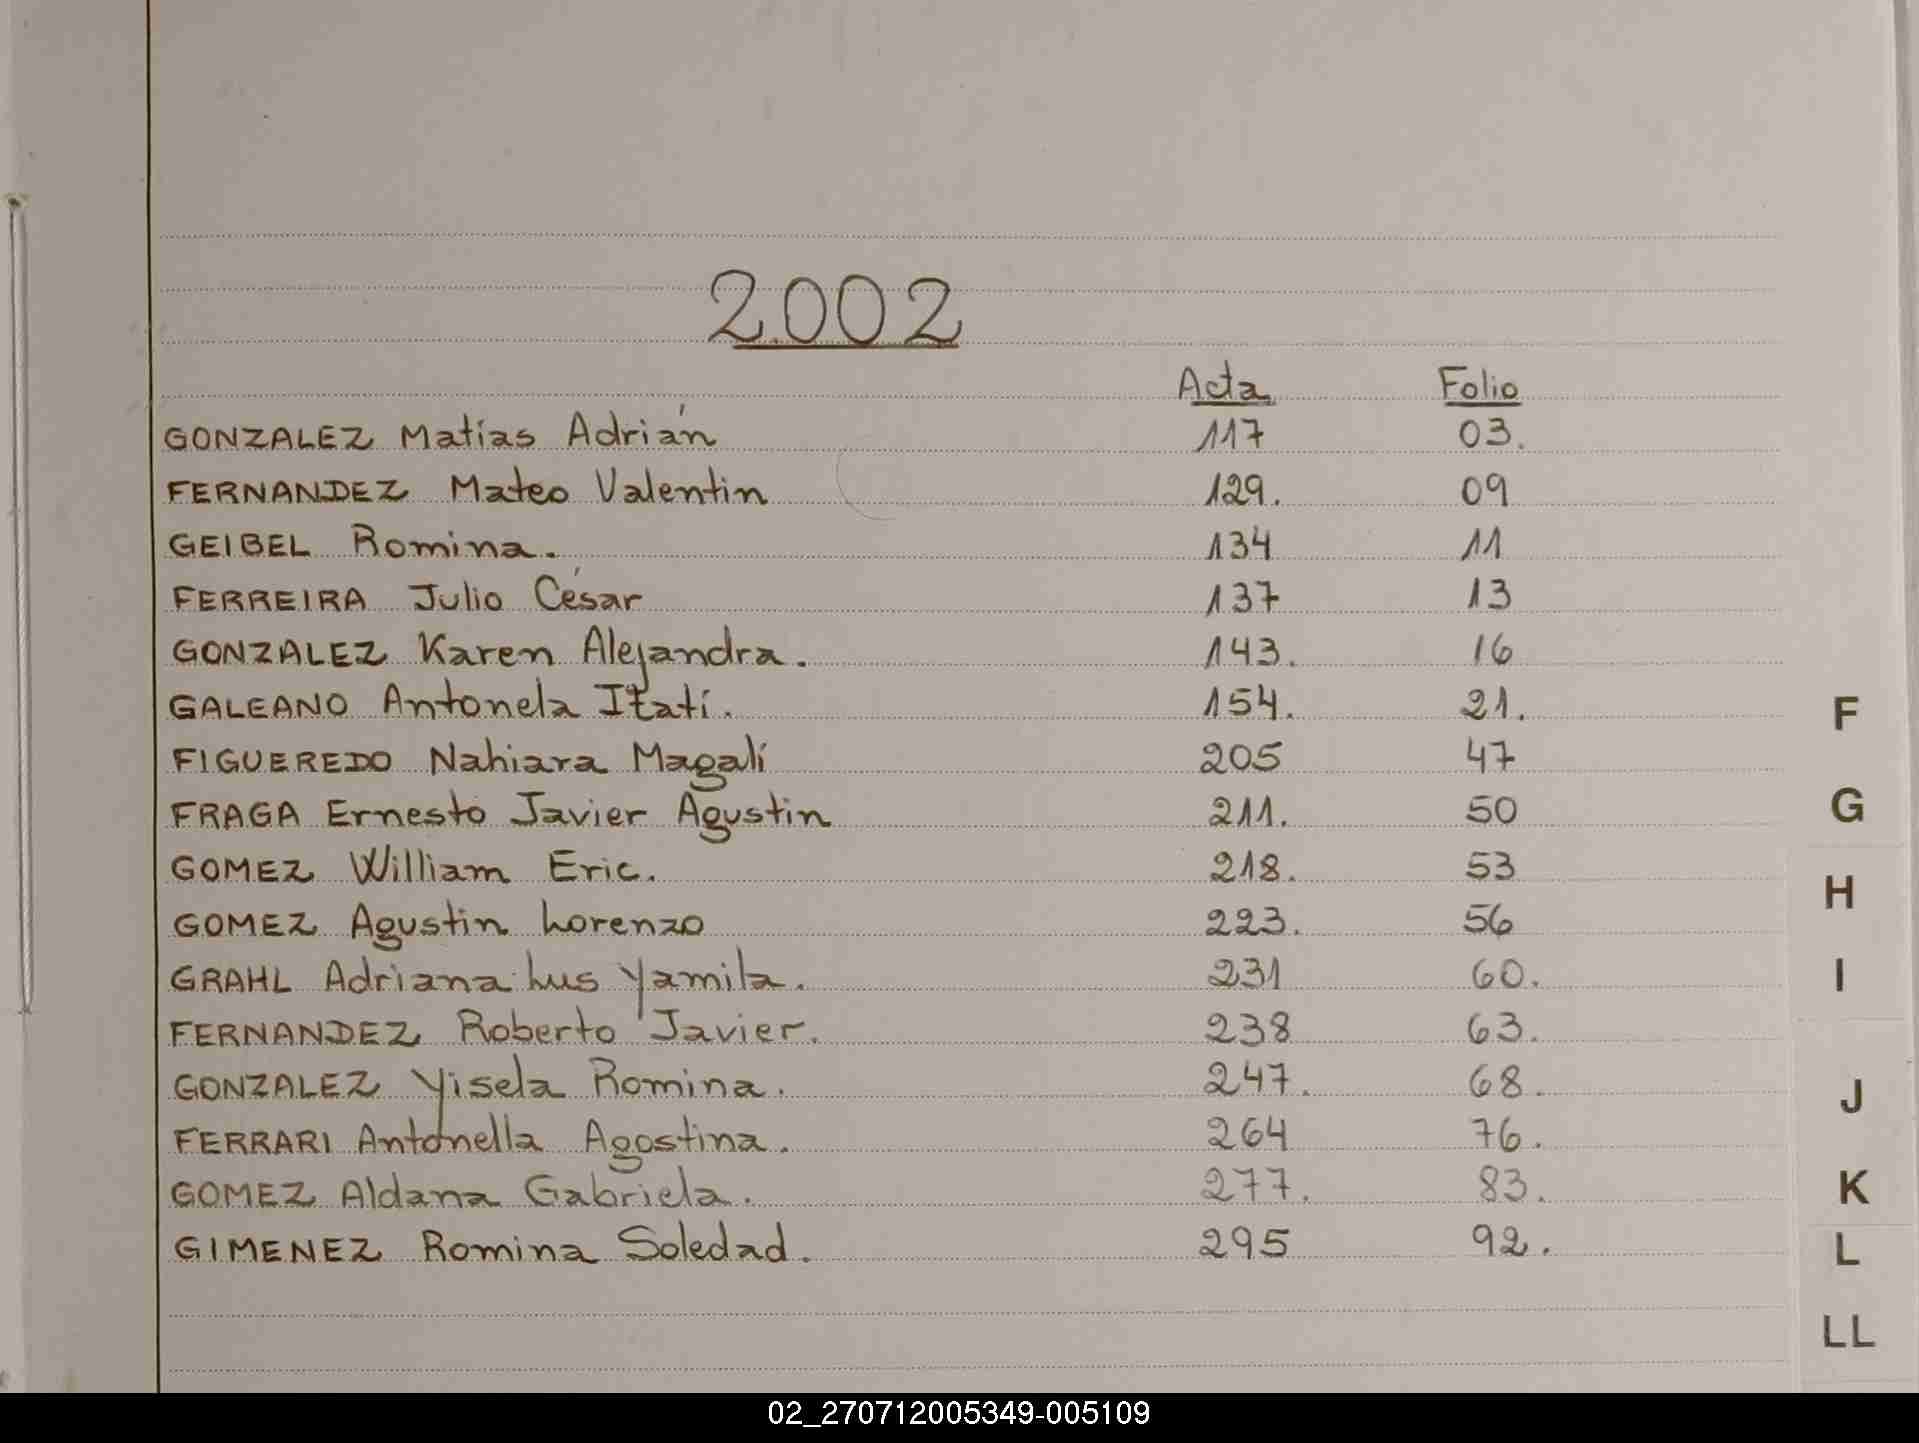 2.002
Acta Folio
GONZALEZ Matías Adrián 117 03.
FERNANDEZ Mateo Valentin 129. 09
GEIBEL Romina. 134 11
FERREIRA Julio César 137 13
GONZALEZ Karen Alejandra. 143. 16
GALEANO Antonela Itatí. 154. 21.
FIGUEREDO Nahiara Magalí 205 47
FRAGA Ernesto Javier Agustin 211. 50
GOMEZ William Eric. 218. 53
GOMEZ Agustin Lorenzo 223. 56
GRAHL Adriana Lus Yamila. 231 60.
FERNANDEZ Roberto Javier. 238 63.
GONZALEZ Yisela Romina. 247. 68.
FERRARI Antonella Agostina. 264 76.
GOMEZ Aldana Gabriela. 277. 83.
GIMENEZ Romina Soledad. 295 92.
F
G
H
I
J
K
L
LL
02_270712005349-005109